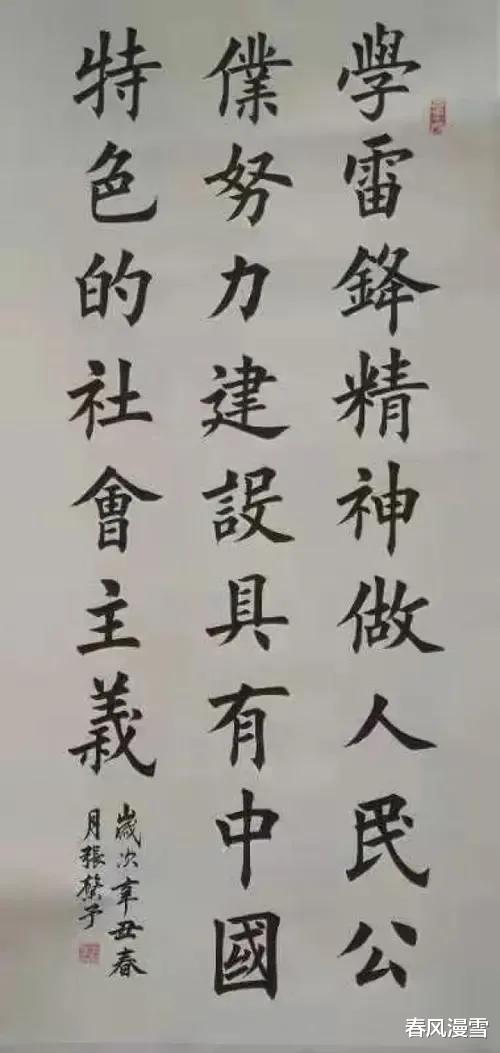 學雷鋒精神做人民公
僕努力建設具有中國
特色的社會主義
歲次辛丑春
月張子
春风漫雪